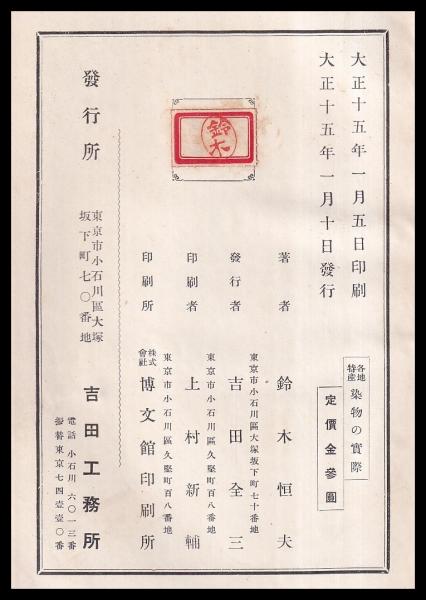 大正十五年一月五日印刷
大正十五年一月十日發行
各地特産 染物の實際
定價金參圓
鈴木
著者 鈴木恒夫
東京市小石川區大塚坂下町七十番地
發行者 吉田全三
東京市小石川區久堅町百八番地
印刷者 上村新輔
東京市小石川區久堅町百八番地
印刷所 株式會社 博文館印刷所
發行所
東京市小石川區大塚
坂下町七〇番地
吉田工務所
電話 小石川 六〇一三番
振替東京七四壹壹〇番